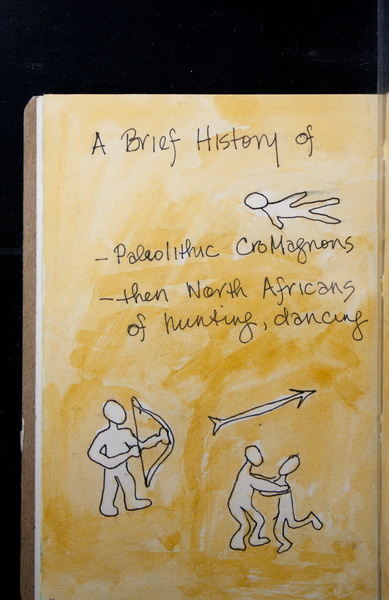 A Brief History of
- Paleolithic CroMagnons
- then North Africans
of hunting, dancing